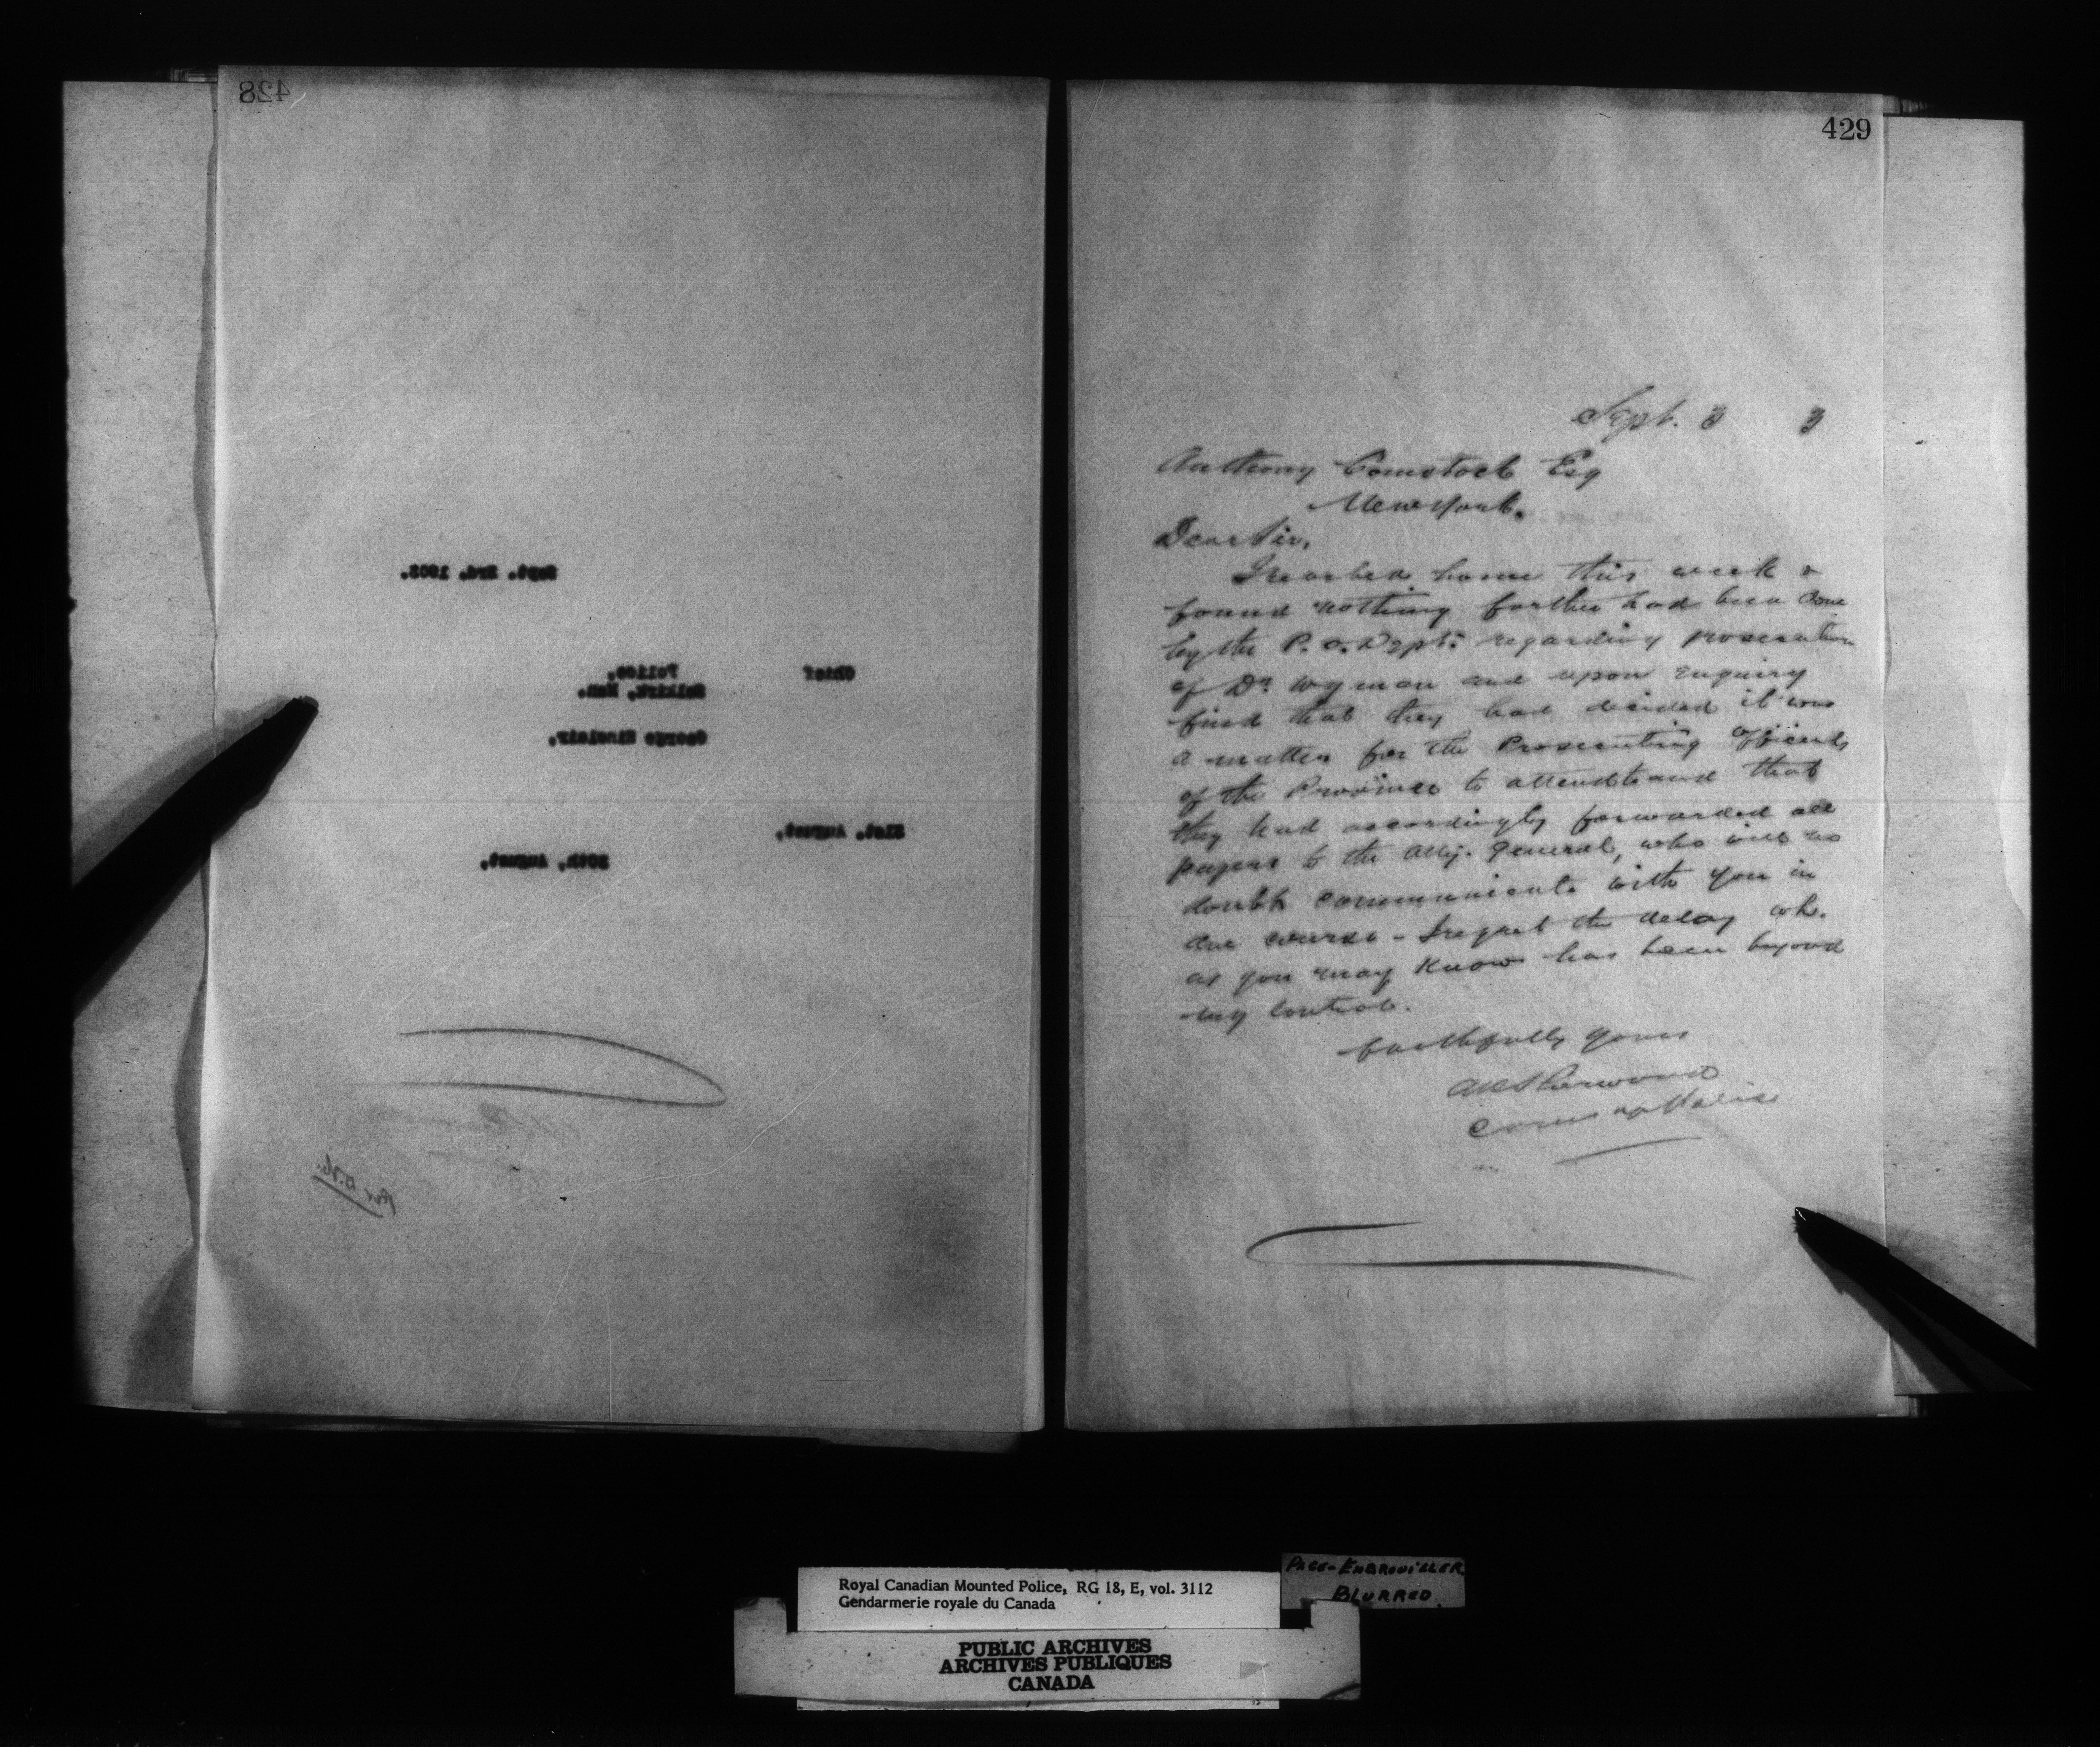 428
Sept. 3rd. 1903.
Chief Police,
Selkirk, Man.
George Sinclair,
31st. August,
30th. August,
Per D.H.
429
Sept. 3 3
Anthony Comstock Esq
New York.
Dear Sir,
I reached home this week &
found nothing further had been done
by the P.O. Dept. regarding prosecution
of Dr. Wyman and upon enquiry
find that they had decided it was
a matter for the Prosecuting Officials
of the Province to attend to and that
they had accordingly forwarded all
papers to the Atty. General, who will no
doubt communicate with you in
due course - I regret the delay wh.
as you may know has been beyond
my control.
Faithfully yours
A P Sherwood
Comr of Police
Royal Canadian Mounted Police, RG 18, E, vol. 3112
Gendarmerie royale du Canada
PAGE-EMBROUILLER.
BLURRED.
PUBLIC ARCHIVES
ARCHIVES PUBLIQUES
CANADA